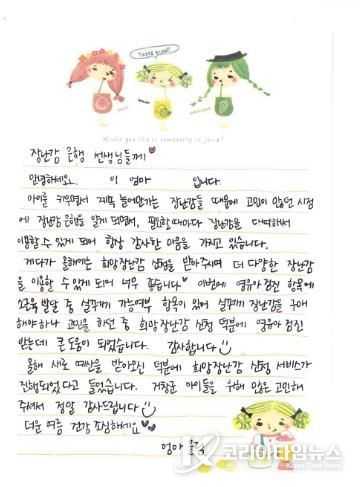 Taste great!
Would you like a companion in juice?
장난감 은행 선생님들께
안녕하세요. 이 엄마 입니다
아이를 키우면서 계속 늘어나는 장난감들 때문에 고민이 많던 시점
에 장난감 은행을 알게 되면서, 필요할 때마다 장난감을 대여해서
이용할 수 있게 되어 항상 감사한 마음을 가지고 있습니다.
게다가 올해에는 희망장난감 신청을 받아주셔서 더 다양한 장난감
을 이용할 수 있게 되어 너무 좋습니다 이번에 영유아 검진 항목에
소근육 발달 중 실꿰기 가능여부 항목이 있어 실꿰기 장난감을 구매
해야하나 고민을 하던 중 희망장난감 신청 덕분에 영유아 검진
받는데 큰 도움이 되었습니다. 감사합니다
올해 새로 예산을 받아오신 덕분에 희망장난감 신청 서비스가
진행되었다고 들었습니다. 거창군 아이들을 위해 많은 고민해
주셔서 정말 감사드립니다
더운 여름 건강 조심하세요
엄마 드림
코리아타임뉴스